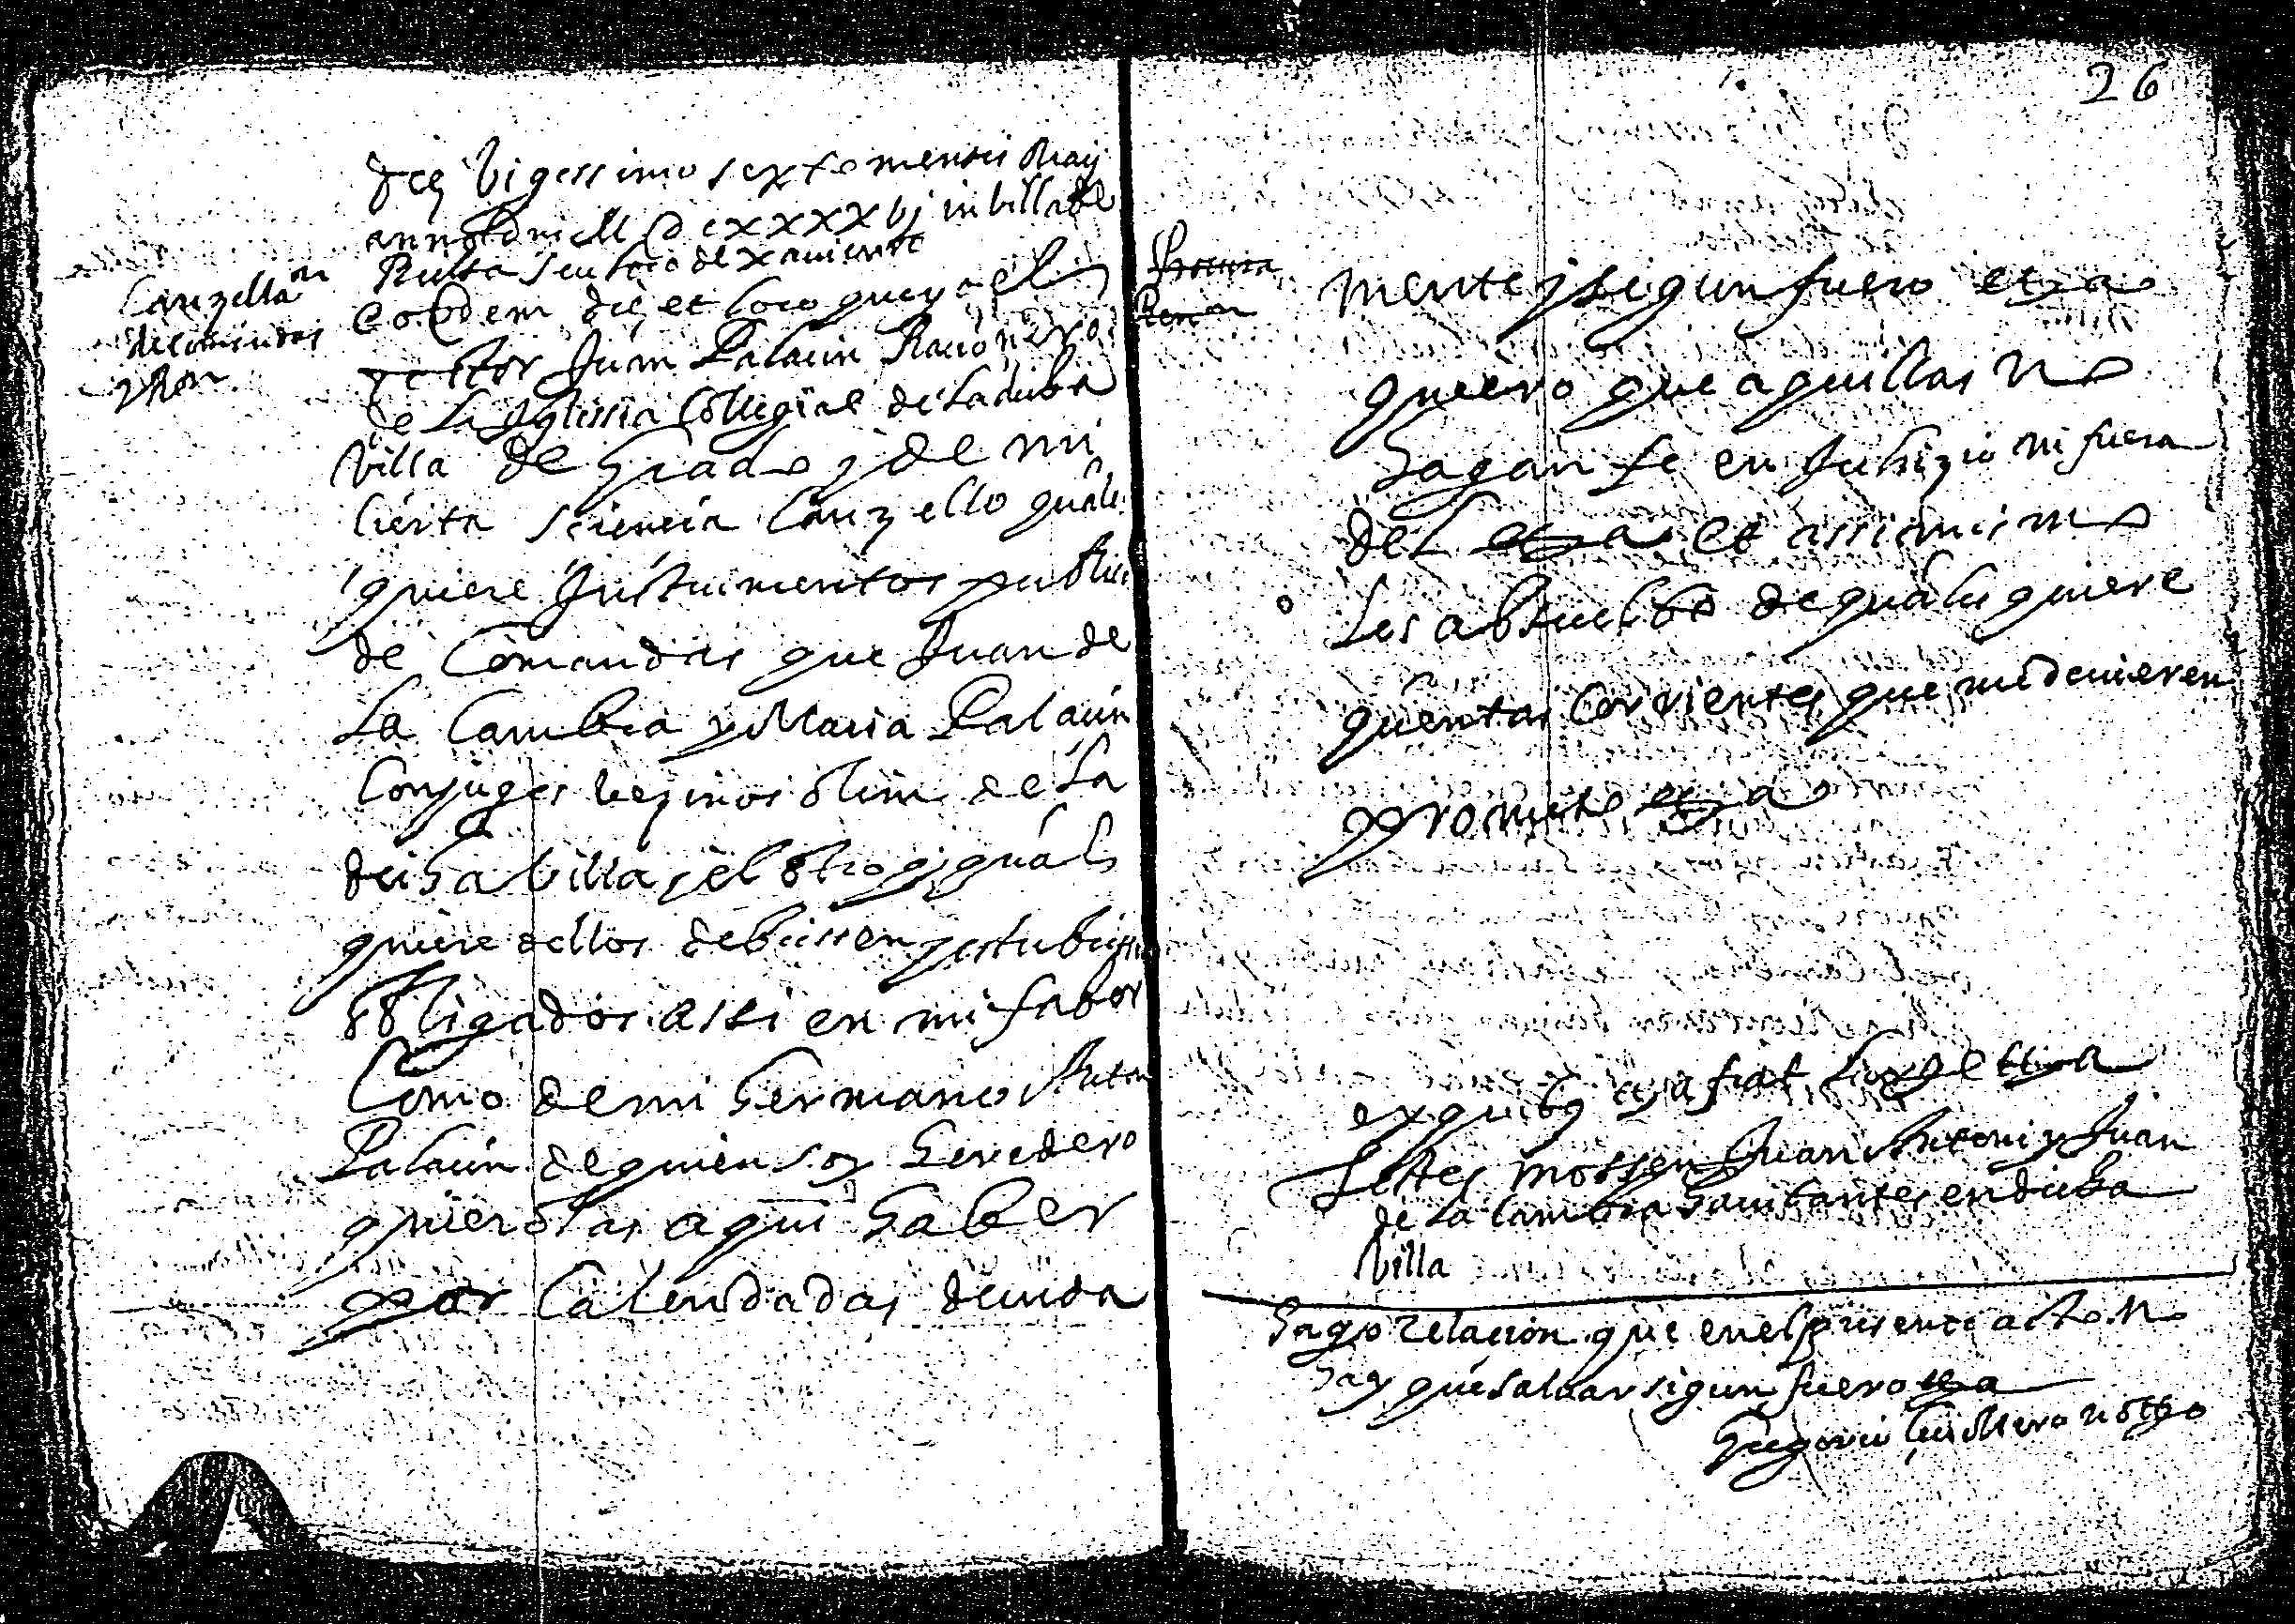 die vigessimo sexto mensis Maij
anno Dni M DCXXXXVj in billa de
seu loco de
Canzellaon
de comandas
eodem die et loco que yo el
Dctor Juan Palacin Racionero
de la Iglessia Collegial de la dicha
Villa de Grado y de mi
cierta sciencia canzello quales
quiere Instrumentos publicos
de Comandas que Juan de
La Cambra y Maria Palacin
Conjuges vezinos olim de la
dicha billa y el otro y qual
quiere dellos debiessen y estubiessen
obligados assi en mi fabor
Como de mi hermano Anton
Palacin de quien soy heredero
quierolas aqui haber
por Calendadas devida
26
mente y segun fuero etxa
quiero que aquellas no
hagan fe en Juhizio ni fuera
del etxa et assimismo
Les absuelbo de quales quiere
quentas corrientes que me devieren
promete etxa
ex quibus etxa fiat large etxa
Testes mossen Juan Antoni y Juan
de la Cambra havitantes en dicha
Villa
hago relacion que en el presente acto no
hay que salvar sigun fuero etxa